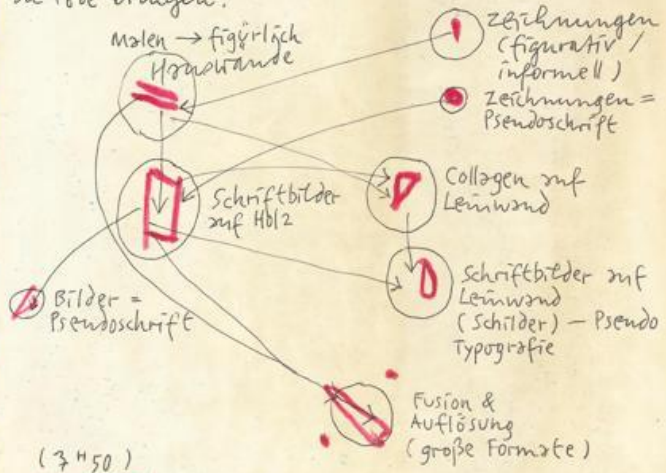 die Töne bringen.
Malen → figürlich
Hauswände
Zeichnungen
(figurativ /
informell)
Zeichnungen =
Pseudoschrift
Schriftbilder
auf Holz
Collagen auf
Leinwand
Bilder =
Pseudoschrift
Schriftbilder auf
Leinwand
(Schilder) – Pseudo
Typografie
Fusion &
Auflösung
(große Formate)
(7 H 50)